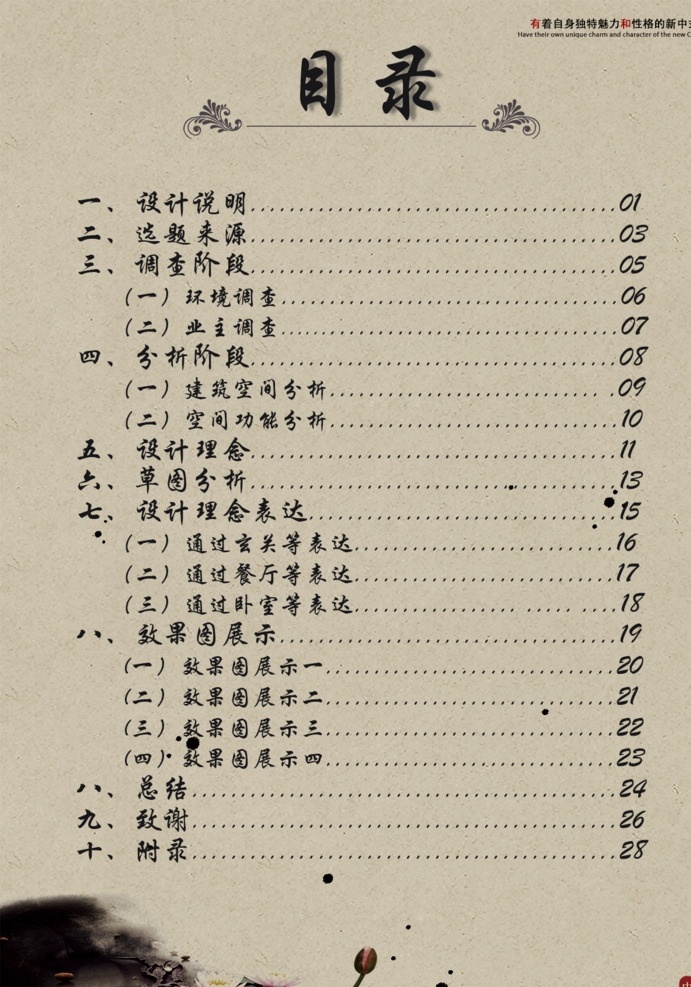 有着自身独特魅力和性格的新中
Have their own unique charm and character of the new
目录
一、设计说明........................................01
二、选题来源........................................03
三、调查阶段........................................05
（一）环境调查........................................06
（二）业主调查........................................07
四、分析阶段........................................08
（一）建筑空间分析........................................09
（二）空间功能分析........................................10
五、设计理念........................................11
六、草图分析........................................13
七、设计理念表达........................................15
（一）通过玄关等表达........................................16
（二）通过餐厅等表达........................................17
（三）通过卧室等表达........................................18
八、效果图展示........................................19
（一）效果图展示一........................................20
（二）效果图展示二........................................21
（三）效果图展示三........................................22
（四）效果图展示四........................................23
八、总结........................................24
九、致谢........................................26
十、附录........................................28